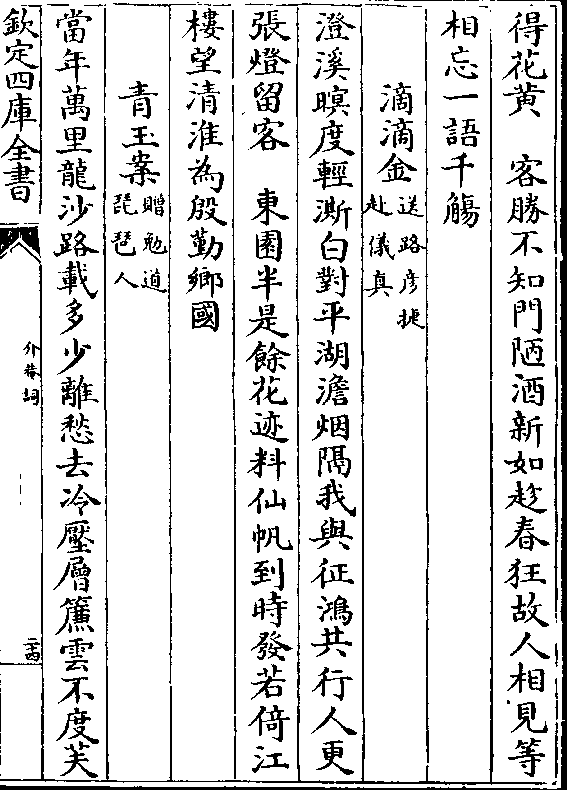 得花黄　客勝不知門陋酒新如趁春狂故人相見等
相忘一語千觴
滴滴金送路彦捷
赴儀真
澄溪暝度輕澌白對平湖澹烟隔我與征鴻共行人更
張燈留客　東園半是餘花迹料仙帆到時發若倚江
樓望清淮為殷勤鄉國
青玉案贈勉道
琵琶人
當年萬里龍沙路載多少離愁去冷壓層簾雲不度芙
欽定四庫全書
介菴詞
二十四